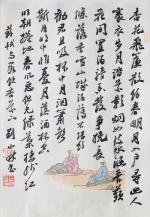 杏花飛簾散餘春明月入戶尋幽人
褰衣步月踏花影炯如流水涵青蘋
花間置酒清香發爭挽長條
落香雪山城薄酒不堪飲
勸君且吸杯中月洞簫聲
斷月明中惟憂月落酒杯空
明朝捲地春風惡但見綠葉棲殘紅